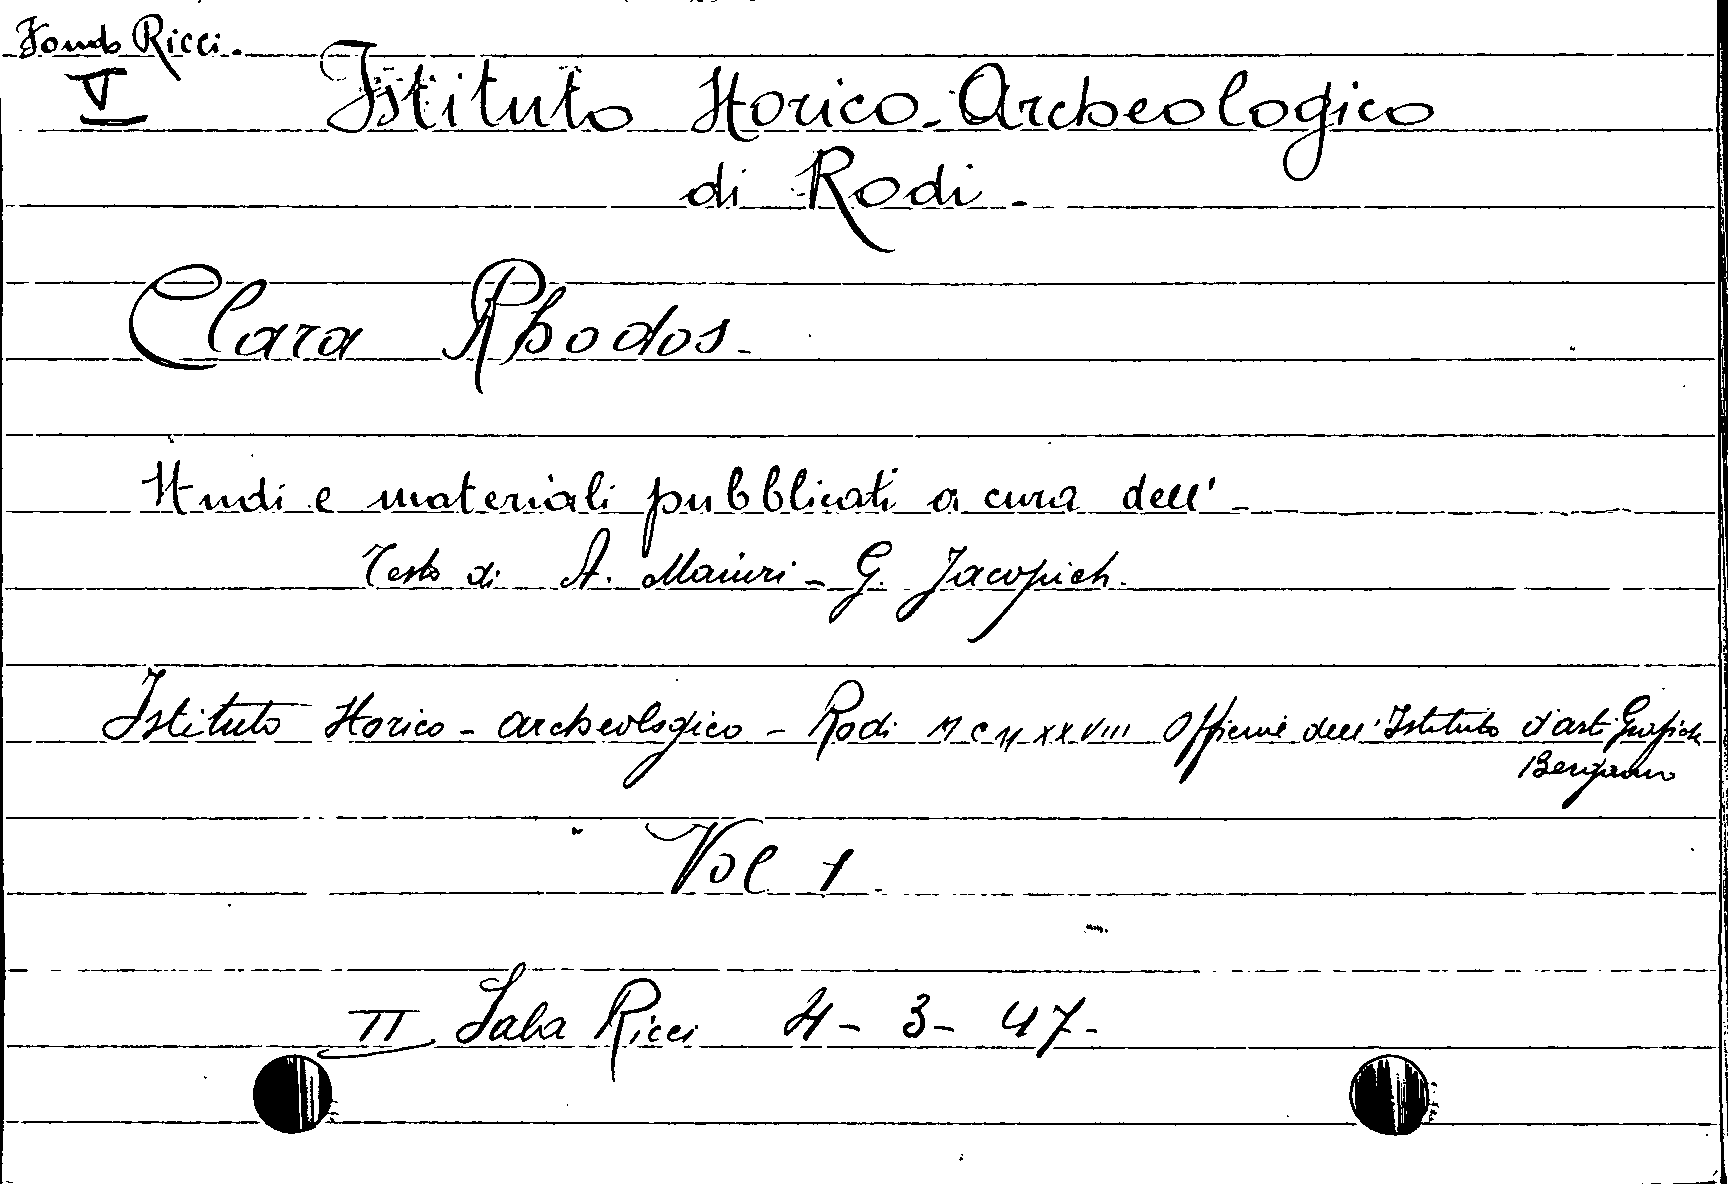 Fondo Ricci.
V Istituto Storico-Archeologico
di Rodi -
Clara Rhodos -
Studi e materiali pubblicati a cura dell'
Testo di A. Maiuri - G. Jacopich.
Istituto Storico - archeologico - Rodi MCMXXVIII Officine dell'Istituto d'arti Grafiche
Bergamo
Vol 1
II Sala Ricci 4 - 3 - 47 -